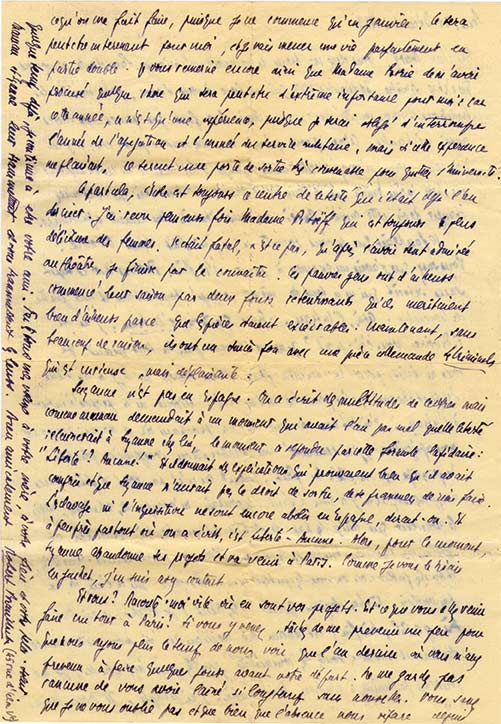 ce qu'on me fait faire, puisque je ne commence qu'en janvier. Ce sera
peut-être intéressant pour moi, et je vais mener ma vie parfaitement en
partie double. Je vous remercie encore ainsi que Madame de m'avoir
procuré quelque chose qui sera peut-être d'extrême importance pour moi : car
cette année, ce n'est qu'une expérience, puisque je serai obligé d'interrompre
l'année de l'agrégation et l'année du service militaire, mais si cette expérience
me plaisait, ce serait une porte de sortie très convenable pour quitter l'Université.
à part cela, c'est toujours le centre de que c'était déjà l'an
dernier. J'ai revu plusieurs fois Madame Pitoëff qui est toujours la plus
délicieuse des femmes. C'était fatal, n'est-ce pas, qu'après l'avoir tant admirée
au théâtre, je finisse par la connaître. Ces pauvres gens ont d'ailleurs
commencé leur saison par deux fours retentissants qu'ils méritaient
bien d'ailleurs parce que les pièces étaient exécrables. Maintenant, sans
beaucoup de raison, ils ont un succès fou avec une pièce allemande les Criminels
qui est curieuse, mais déplaisante.
Suzanne n'est pas en Espagne. On a écrit des multitudes de lettres mais
comme on demandait à un moment quelle liberté
serait à Suzanne , le monsieur a répondu par cette formule lapidaire :
"Liberté ? Aucune." Et donnait des explications qui prouvaient bien qu'il avait
compris et que Suzanne n'aurait pas le droit de sortir, de se promener, de rien faire.
L'esclavage ni l'inquisition ne sont encore abolis en Espagne, dirait-on. Et
à peu près partout où on a écrit, c'est liberté : aucune. Alors, pour le moment,
Suzanne abandonne ses projets et va venir à Paris. Comme je vous le disais
en juillet, j'en suis assez content.
Et vous ? Racontez-moi vite où en sont vos projets. Est-ce que vous allez venir
faire un tour à Paris ? Si vous y venez, tâchez de me prévenir un peu pour
que nous ayons plus le temps de nous voir que l'an dernier où vous m'avez
prévenu à peine quelques jours avant votre départ. Ne me gardez pas
rancune de vous avoir laissé si longtemps sans nouvelles. Vous savez
que je ne vous oublie pas et que bien que l'absence nous sépare depuis
quelque temps déjà je continue à être votre ami. Dites tous mes vœux à votre mère, à votre père et votre
Bien amicalement Robert Brasillach (45 rue d'Ulm V)